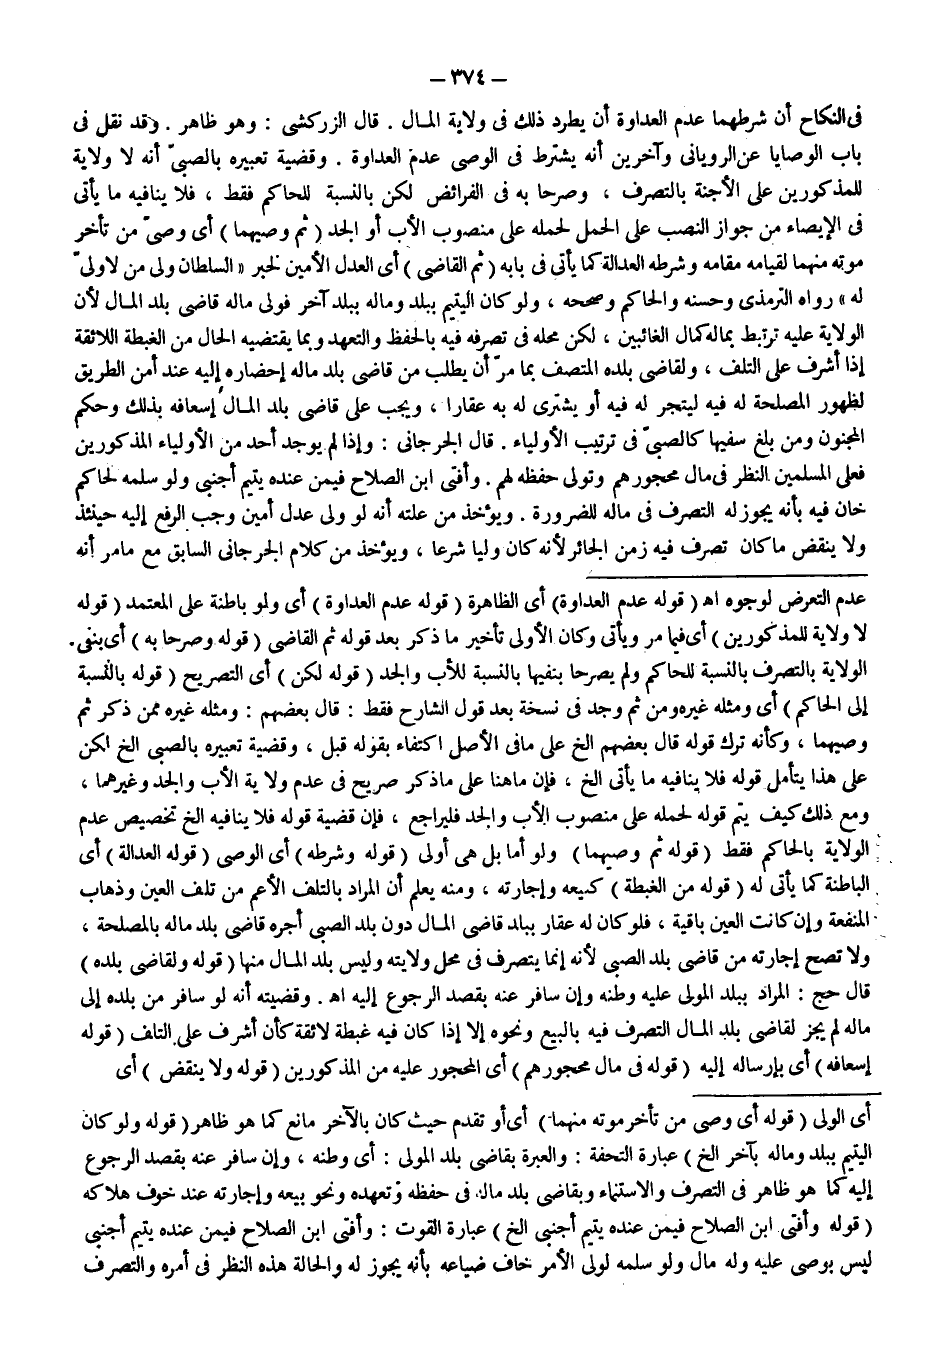 – ٣٧٤ –
فى النكاح أن شرطهما عدم العداوة أن يطرد ذلك فى ولاية المال . قال الزركشى : وهو ظاهر . وقد نقل فى
باب الوصايا عن الرويانى وآخرين أنه يشترط فى الوصى عدم العداوة . وقضية تعبيره بالصبىّ أنه لا ولاية
للمذكورين على الأجنة بالتصرف ، وصرحا به فى الفرائض لكن بالنسبة للحاكم فقط ، فلا ينافيه ما يأتى
فى الإيصاء من جواز النصب على الحمل لحمله على منصوب الأب أو الجد ( ثم وصيهما ) أى وصىّ من تأخر
موته منهما لقيامه مقامه وشرطه العدالة كما يأتى فى بابه ( ثم القاضى ) أى العدل الأمين لخبر « السلطان ولى من لا ولىّ
له » رواه الترمذى وحسنه والحاكم وصححه ، ولو كان اليتيم ببلد وماله ببلد آخر فولى ماله قاضى بلد المال لأن
الولاية عليه ترتبط بماله كمال الغائبين ، لكن محله فى تصرفه فيه بالحفظ والتعهد وبما يقتضيه الحال من الغبطة اللائقة
إذا أشرف على التلف ، ولقاضى بلده المتصف بما مرّ أن يطلب من قاضى بلد ماله إحضاره إليه عند أمن الطريق
لظهور المصلحة له فيه ليتجر له فيه أو يشترى له به عقارا ، ويجب على قاضى بلد المال إسعافه بذلك وحكم
المجنون ومن بلغ سفيها كالصبىّ فى ترتيب الأولياء . قال الجرجانى : وإذا لم يوجد أحد من الأولياء المذكورين
فعلى المسلمين النظر فى مال محجورهم وتولى حفظه لهم . وأفتى ابن الصلاح فيمن عنده يتيم أجنبى ولو سلمه لحاكم
خان فيه بأنه يجوز له التصرف فى ماله للضرورة . ويؤخذ من علته أنه لو ولى عدل أمين وجب الرفع إليه حينئذ
ولا ينقض ما كان تصرف فيه زمن الجائر لأنه كان وليا شرعا ، ويؤخذ من كلام الجرجانى السابق مع مامر أنه
عدم التعرض لوجوه اه ( قوله عدم العداوة) أى الظاهرة ( قوله عدم العداوة ) أى ولو باطنة على المعتمد ( قوله
لا ولاية للمذكورين ) أى فيما مر ويأتى وكان الأولى تأخير ما ذكر بعد قوله ثم القاضى ( قوله وصرحا به ) أى بنفى
الولاية بالتصرف بالنسبة للحاكم ولم يصرحا بنفيها بالنسبة للأب والجد ( قوله لكن ) أى التصريح ( قوله بالنسبة
إلى الحاكم ) أى ومثله غيره ومن ثم وجد فى نسخة بعد قول الشارح فقط : قال بعضهم : ومثله غيره ممن ذكر ثم
وصيهما ، وكأنه ترك قوله قال بعضهم الخ على مافى الأصل اكتفاء بقوله قبل ، وقضية تعبيره بالصبى الخ لكن
على هذا يتأمل قوله فلا ينافيه ما يأتى الخ ، فإن ماهنا على ماذكر صريح فى عدم ولاية الأب والجد وغيرهما ،
ومع ذلك كيف يتم قوله لحمله على منصوب الأب والجد فليراجع ، فإن قضية قوله فلا ينافيه الخ تخصيص عدم
الولاية بالحاكم فقط ( قوله ثم وصيهما ) ولو أما بل هى أولى ( قوله وشرطه ) أى الوصى ( قوله العدالة ) أى
الباطنة كما يأتى له ( قوله من الغبطة ) كبيعه وإجارته ، ومنه يعلم أن المراد بالتلف الأعم من تلف العين وذهاب
المنفعة وإن كانت العين باقية ، فلو كان له عقار ببلد قاضى المال دون بلد الصبى أجره قاضى بلد ماله بالمصلحة ،
ولا تصح إجارته من قاضى بلد الصبى لأنه إنما يتصرف فى محل ولايته وليس بلد المال منها ( قوله ولقاضى بلده )
قال حج : المراد ببلد المولى عليه وطنه وإن سافر عنه بقصد الرجوع إليه اه . وقضيته أنه لو سافر من بلده إلى
ماله لم يجز لقاضى بلد المال التصرف فيه بالبيع ونحوه إلا إذا كان فيه غبطة لائقة كأن أشرف على التلف ( قوله
إسعافه ) أى بإرساله إليه ( قوله فى مال محجورهم ) أى المحجور عليه من المذكورين ( قوله ولا ينقض ) أى
أى الولى ( قوله أى وصى من تأخر موته منهما ) أى أو تقدم حيث كان بالآخر مانع كما هو ظاهر ( قوله ولو كان
اليتيم ببلد وماله بآخر الخ ) عبارة التحفة : والعبرة بقاضى بلد المولى : أى وطنه ، وإن سافر عنه بقصد الرجوع
إليه كما هو ظاهر فى التصرف والاستنماء وبقاضى بلد ماله فى حفظه وتعهده ونحو بيعه وإجارته عند خوف هلاكه
( قوله وأفتى ابن الصلاح فيمن عنده يتيم أجنبى الخ ) عبارة القوت : وأفتى ابن الصلاح فيمن عنده يتيم أجنبى
ليس بوصى عليه وله مال ولو سلمه لولى الأمر خاف ضياعه بأنه يجوز له والحالة هذه النظر فى أمره والتصرف